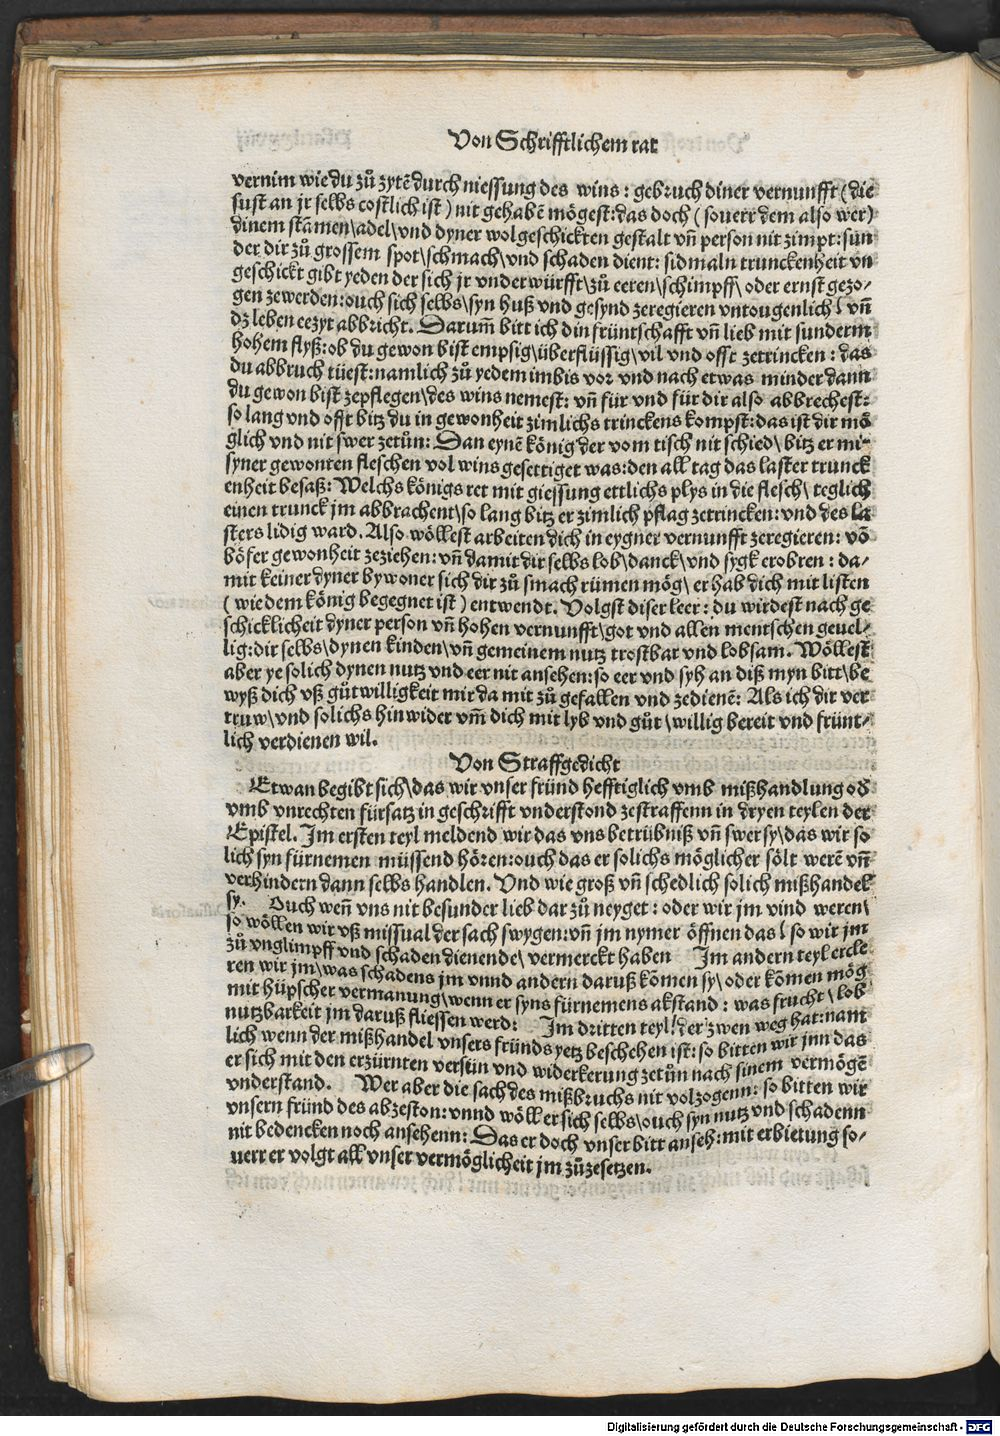 Von Schrifftlichem rat
vernim wie du zů zytē durch niessung des wins : gebruch diner vernunfft ( die
sust an jr selbs costlich ist ) nit gehabē mögest: das doch ( souerr dem also wer)
dinem stāmen\adel\vnd dyner wolgeschickten gestalt vn̄ person nit zimpt: sun
der dir zů grossem spot\schmach\vnd schaden dient: sidmaln trunckenheit vn
geschickt gibt yeden der sich jr vnderwürfft\zů eeren\schimpff\ oder ernst gezo⸗
gen zewerden: ouch sich selbs\syn huß vnd gesynd zeregieren vntougenlich\ vn̄
dz leben eezyt abbricht. Darum̄ bitt ich din früntschafft vn̄ lieb mit sunderm
hohem flyß: ob du gewon bist empsig\überflüssig\vil vnd offt zetrincken : das
du abbruch tüest: namlich zů yedem imbis vor vnd nach etwas minder dann
du gewon bist zepflegen\des wins nemest: vn̄ für vnd für dir also abbrechest:
so lang vnd offt bitz du in gewonheit zimlichs trinckens kompst: das ist dir mö
glich vnd nit swer zetůn: Dan eynē könig der vom tisch nit schied\ bitz er mit
syner gewonten fleschen vol wins gesettiget was: den all tag das laster trunck
enheit besaß: Welchs königs ret mit giessung ettlichs plys in die flesch\ teglich
einen trunck jm abbrachent\so lang bitz er zimlich pflag zetrincken: vnd des la
sters lidig ward. Also wöllest arbeiten dich in eygner vernunfft zeregieren: vō
böser gewonheit zeziehen: vn̄ damit dir selbs lob\danck\vnd sygk erobren : da⸗
mit keiner dyner bywoner sich dir zů smach rümen mög\ er hab dich mit listen
( wie dem könig begegnet ist ) entwendt. Volgst diser leer : du wirdest nach ge
schicklicheit dyner person vn̄ hohen vernunfft\got vnd allen mentschen geuel⸗
lig: dir selbs\dynen kinden\vn̄ gemeinem nutz trostbar vnd lobsam. Wöllest
aber ye solich dynen nutz vnd eer nit ansehen: so eer vnd syh an diß myn bitt\be
wyß dich vß gůtwilligkeit mir da mit zů gefallen vnd zedienē: Als ich dir ver
truw\vnd solichs hinwider vm̄ dich mit lyb vnd gůt\willig bereit vnd frünt⸗
lich verdienen wil.
Von Straffgedicht
Etwan begibt sich\das wir vnser fründ hefftiglich vmb mißhandlung od
vmb vnrechten fürsatz in geschrifft vnderstond zestraffenn in dryen teylen der
Epistel. Im ersten teyl meldend wir das vns betrübniß vn̄ swer sy\das wir so
lich syn fürnemen müssend hören: ouch das er solichs möglicher sölt werē vn̄
verhindern dann selbs handlen. Vnd wie groß vn̄ schedlich solich mißhandel
sy. Ouch wen̄ vns nit besunder lieb dar zů neyget : oder wir jm vind weren\
so wöllen wir vß missual der sach swygen: vn̄ jm nymer öffnen das\ so wir jm
zů vnglimpff vnd schaden dienende\ vermerckt haben Im andern teyl ercle
ren wir jm\was schadens jm vnnd andern daruß kömen sy\oder kömen mög
mit hüpscher vermanung\wenn er syns fürnemens akstand : was frucht\lob
nutzbarkeit jm daruß fliessen werd: Im dritten teyl\der zwen weg hat: nam
lich wenn der mißhandel vnsers fründs yetz beschehen ist: so bitten wir jnn das
er sich mit den erzürnten versün vnd widerkerung zetůn nach sinem vermögē
vnderstand. Wer aber die sach des mißbruchs nit volzogenn: so bitten wir
vnsern fründ des abzeston: vnnd wöll er sich selbs\ouch syn nutz vnd schadenn
nit bedencken noch ansehenn: Das er doch vnser bitt anseh: mit erbietung so⸗
uerr er volgt all vnser vermöglicheit jm zůzesetzen.
Digitalisierung gefördert durch die Deutsche Forschungsgemeinschaft - DFG